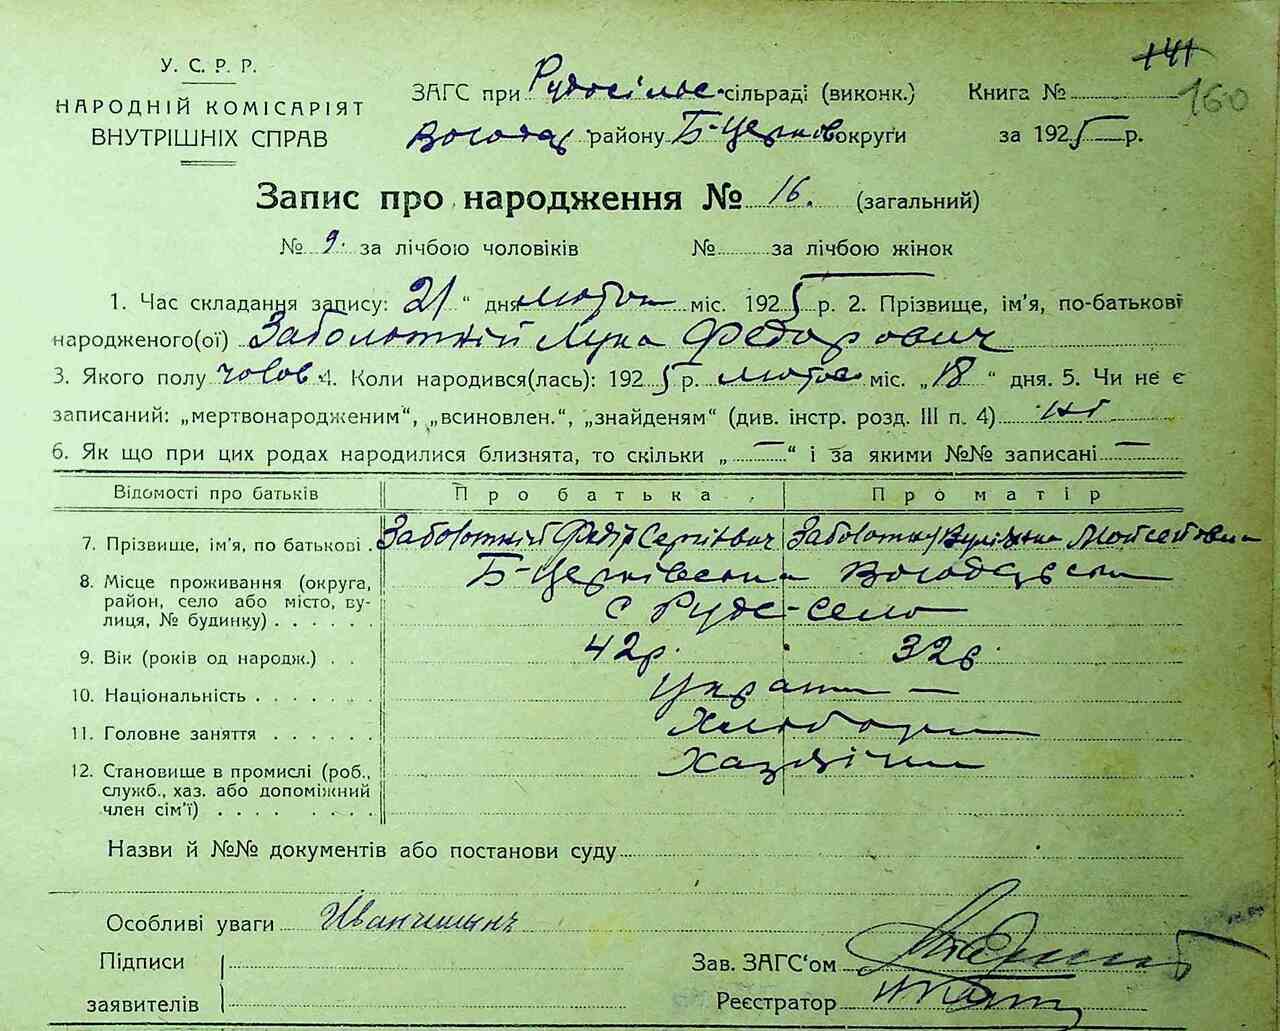 141
160
У. С. Р. Р.
НАРОДНІЙ КОМІСАРІЯТ
ВНУТРІШНІХ СПРАВ
ЗАГС при Рудосільс. сільраді (виконк.) Книга №
Володар району Б-Церків округи за 1925 р.
Запис про народження № 16. (загальний)
№ 9. за лічбою чоловіків № за лічбою жінок
1. Час складання запису: 21 " дня лютого міс. 1925 р. 2. Прізвище, ім'я, по-батькові
народженого(ої) Заболотній Лука Федорович
3. Якого полу чолов 4. Коли народився(лась): 1925 р. лютого міс. „18 " дня. 5. Чи не є
записаний: „мертвонародженим", „всиновлен.", „знайденям" (див. інстр. розд. III п. 4) ні
6. Як що при цих родах народилися близнята, то скільки „ — " і за якими №№ записані —
Відомості про батьків Про батька Про матір
7. Прізвище, ім'я, по батькові Заболотній Федір Сергієвич Заболотна Мойсеївна
8. Місце проживання (округа, Б-Церківська Володарська
район, село або місто, ву-
лиця, № будинку) с Руде-село
9. Вік (років од народж.) 42р. 32р.
10. Національність україн —
11. Головне заняття Хлібороби
12. Становище в промислі (роб., Хазяїни
служб., хаз. або допоміжний
член сім'ї)
Назви й №№ документів або постанови суду
Особливі уваги Иванчишинъ
Підписи
заявителів
Зав. ЗАГС'ом
Реєстратор